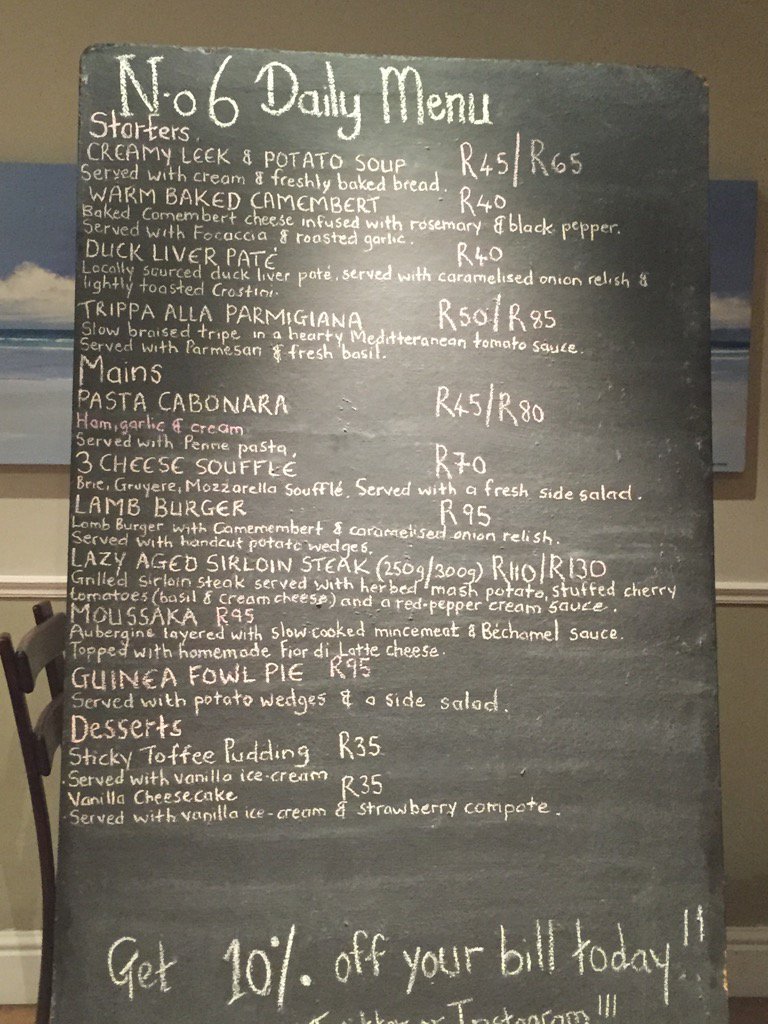 No 6 Daily Menu
Starters
CREAMY LEEK & POTATO SOUP R45/R65
Served with cream & freshly baked bread.
WARM BAKED CAMEMBERT R40
Baked Camembert cheese infused with rosemary & black pepper.
Served with Focaccia & roasted garlic.
DUCK LIVER PATÉ R40
Locally sourced duck liver paté, served with caramelised onion relish &
lightly toasted Crostini.
TRIPPA ALLA PARMIGIANA R50/R85
Slow braised tripe in a hearty Meditteranean tomato sauce.
Served with Parmesan & fresh basil.
Mains
PASTA CABONARA R45/R80
Ham, garlic & cream
Served with Penne pasta.
3 CHEESE SOUFFLÉ R70
Brie, Gruyere, Mozzarella Soufflé. Served with a fresh side salad.
LAMB BURGER R95
Lamb Burger with Camemembert & caramelised onion relish.
Served with handcut potato wedges.
LAZY AGED SIRLOIN STEAK (250g/300g) R110/R130
Grilled Sirloin steak served with herbed mash potato, stuffed cherry
tomatoes (basil & cream cheese) and a red-pepper cream sauce.
MOUSSAKA R95
Aubergine layered with slow cooked mincemeat & Béchamel sauce.
Topped with homemade Fior di Latte cheese.
GUINEA FOWL PIE R95
Served with potato wedges & a side salad.
Desserts
Sticky Toffee Pudding R35
Served with vanilla ice-cream
Vanilla Cheesecake R35
Served with vanilla ice-cream & strawberry compote.
Get 10% off your bill today!!
Instagram!!!